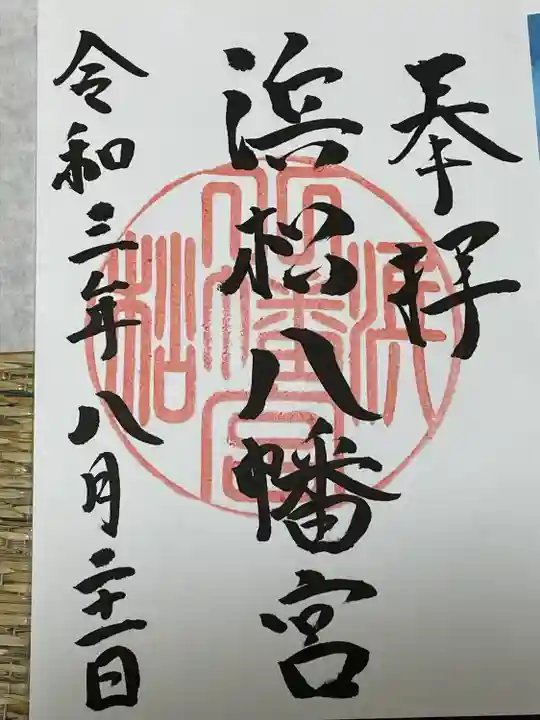 奉拝
浜松八幡宮
令和三年八月二十一日
浜松八幡宮